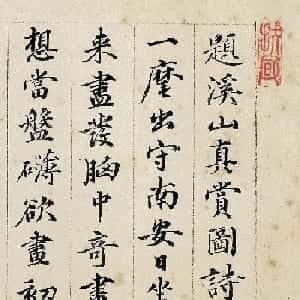 題溪山真賞圖詩
一麾出守南安日坐
来盡發胸中奇畫
想當盤礴欲畫初